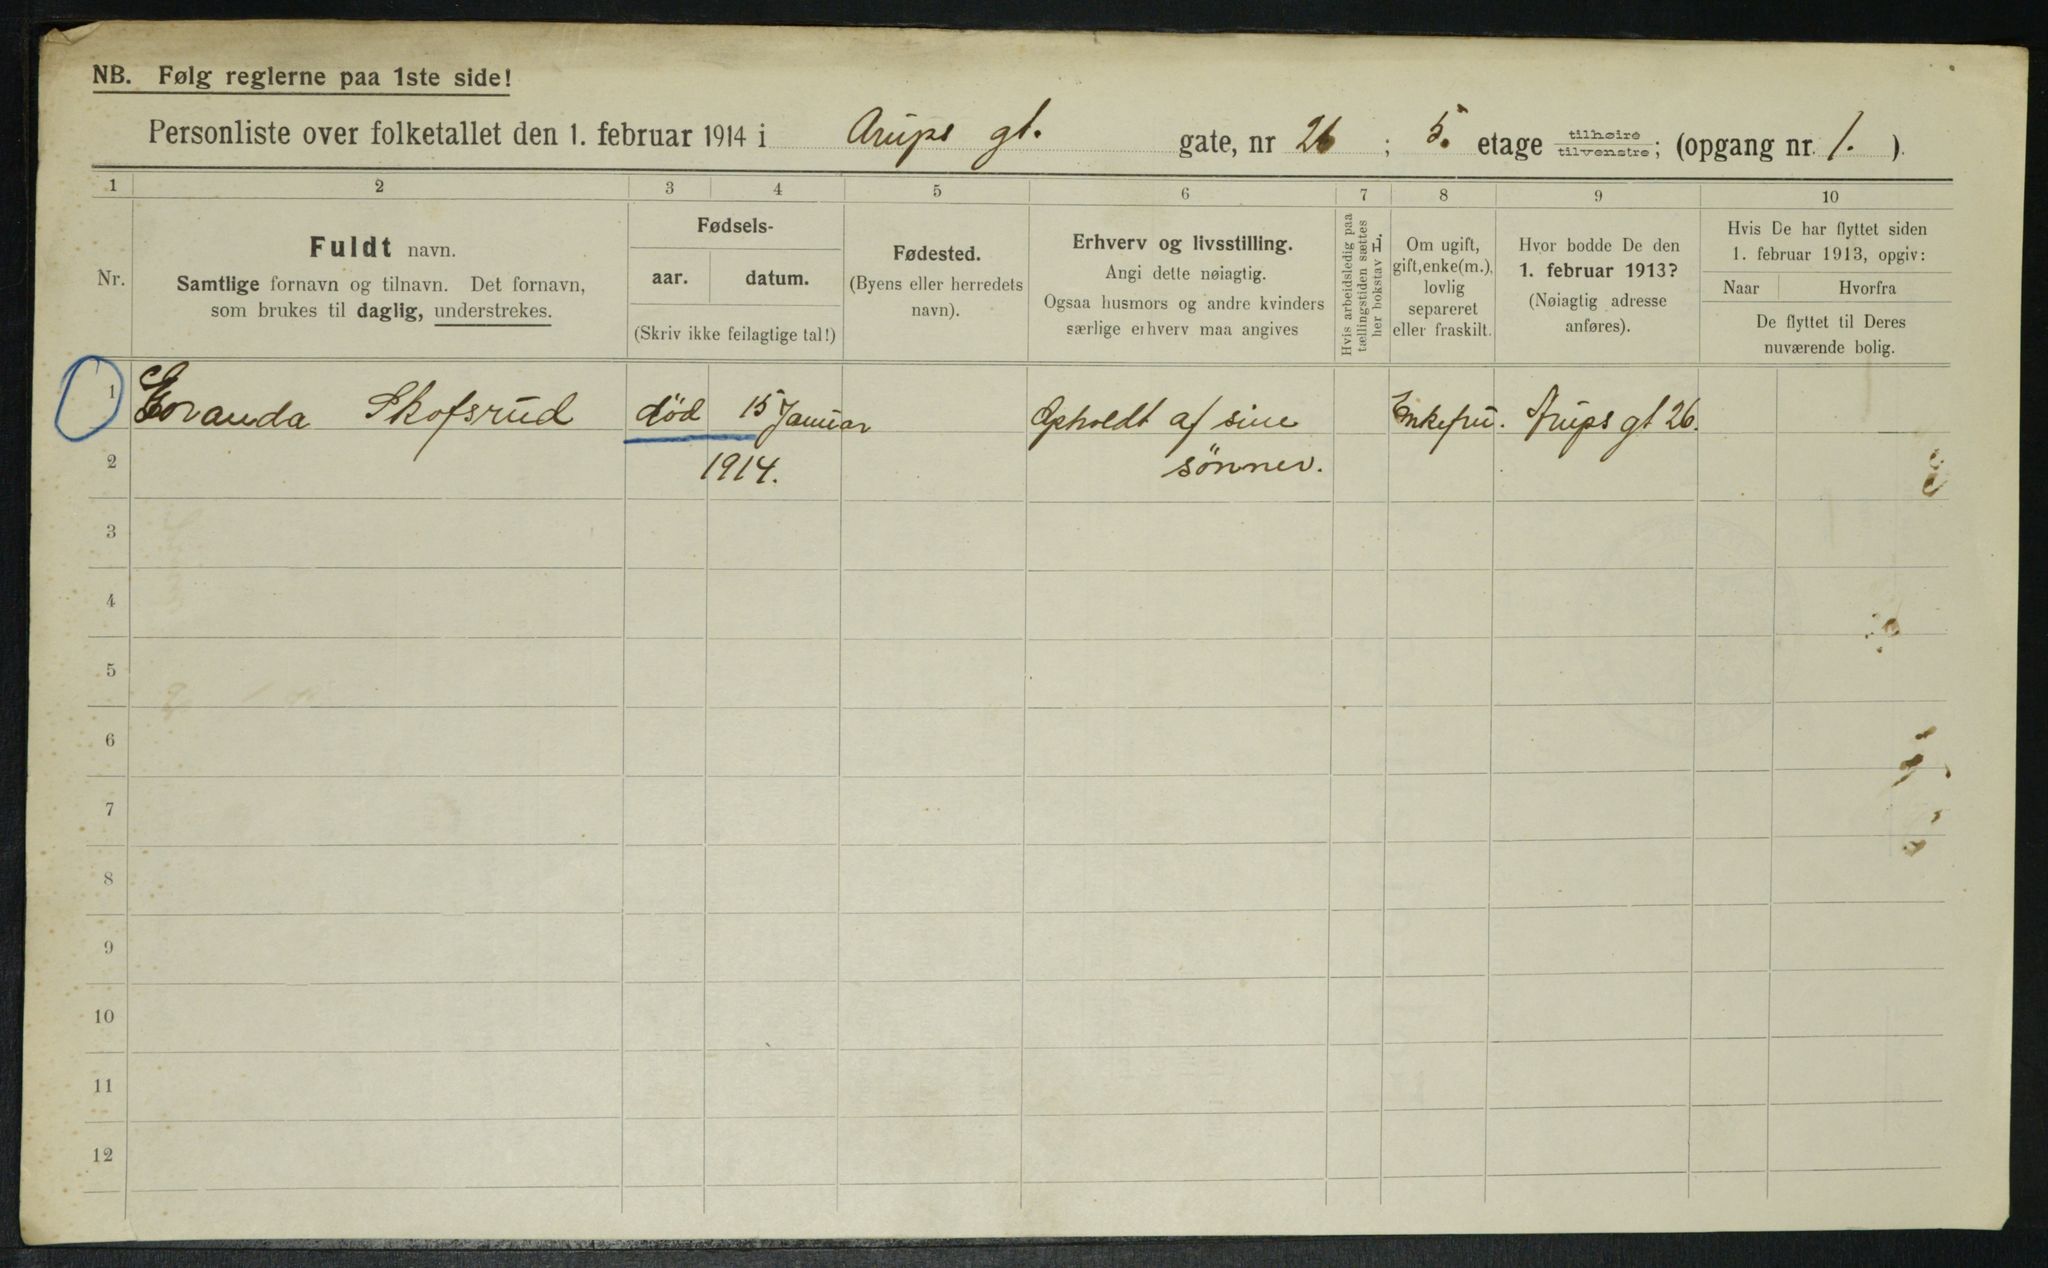 NB. Følg reglerne paa 1ste side!
Personliste over folketallet den 1. februar 1914 i Arups gt. gate, nr 26 ; 5. etage tilhøire tilvenstre; (opgang nr. 1. )
1 2 3 4 5 6 7 8 9 10
Nr.
Fuldt navn.
Samtlige fornavn og tilnavn. Det fornavn,
som brukes til daglig, understrekes.
Fødsels-
aar. datum.
(Skriv ikke feilagtige tal!)
Fødested.
(Byens eller herredets
navn).
Erhverv og livsstilling.
Angi dette nøiagtig.
Ogsaa husmors og andre kvinders
særlige erhverv maa angives
Hvis arbeidsledig paa
tællingstiden sættes
her bokstav L.
Om ugift,
gift, enke(m.),
lovlig
separeret
eller fraskilt.
Hvor bodde De den
1. februar 1913?
(Nøiagtig adresse
anføres).
Hvis De har flyttet siden
1. februar 1913, opgiv:
Naar Hvorfra
De flyttet til Deres
nuværende bolig.
1 Skofsrud død 15 Januar Opholdt af sine Enkefru. Arups gt 26.
2 1914. sønner.
3
4
5
6
7
8
9
10
11
12